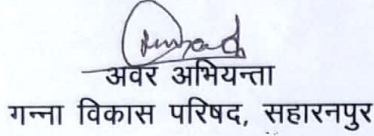 अवर अभियन्ता
गन्ना विकास परिषद, सहारनपुर